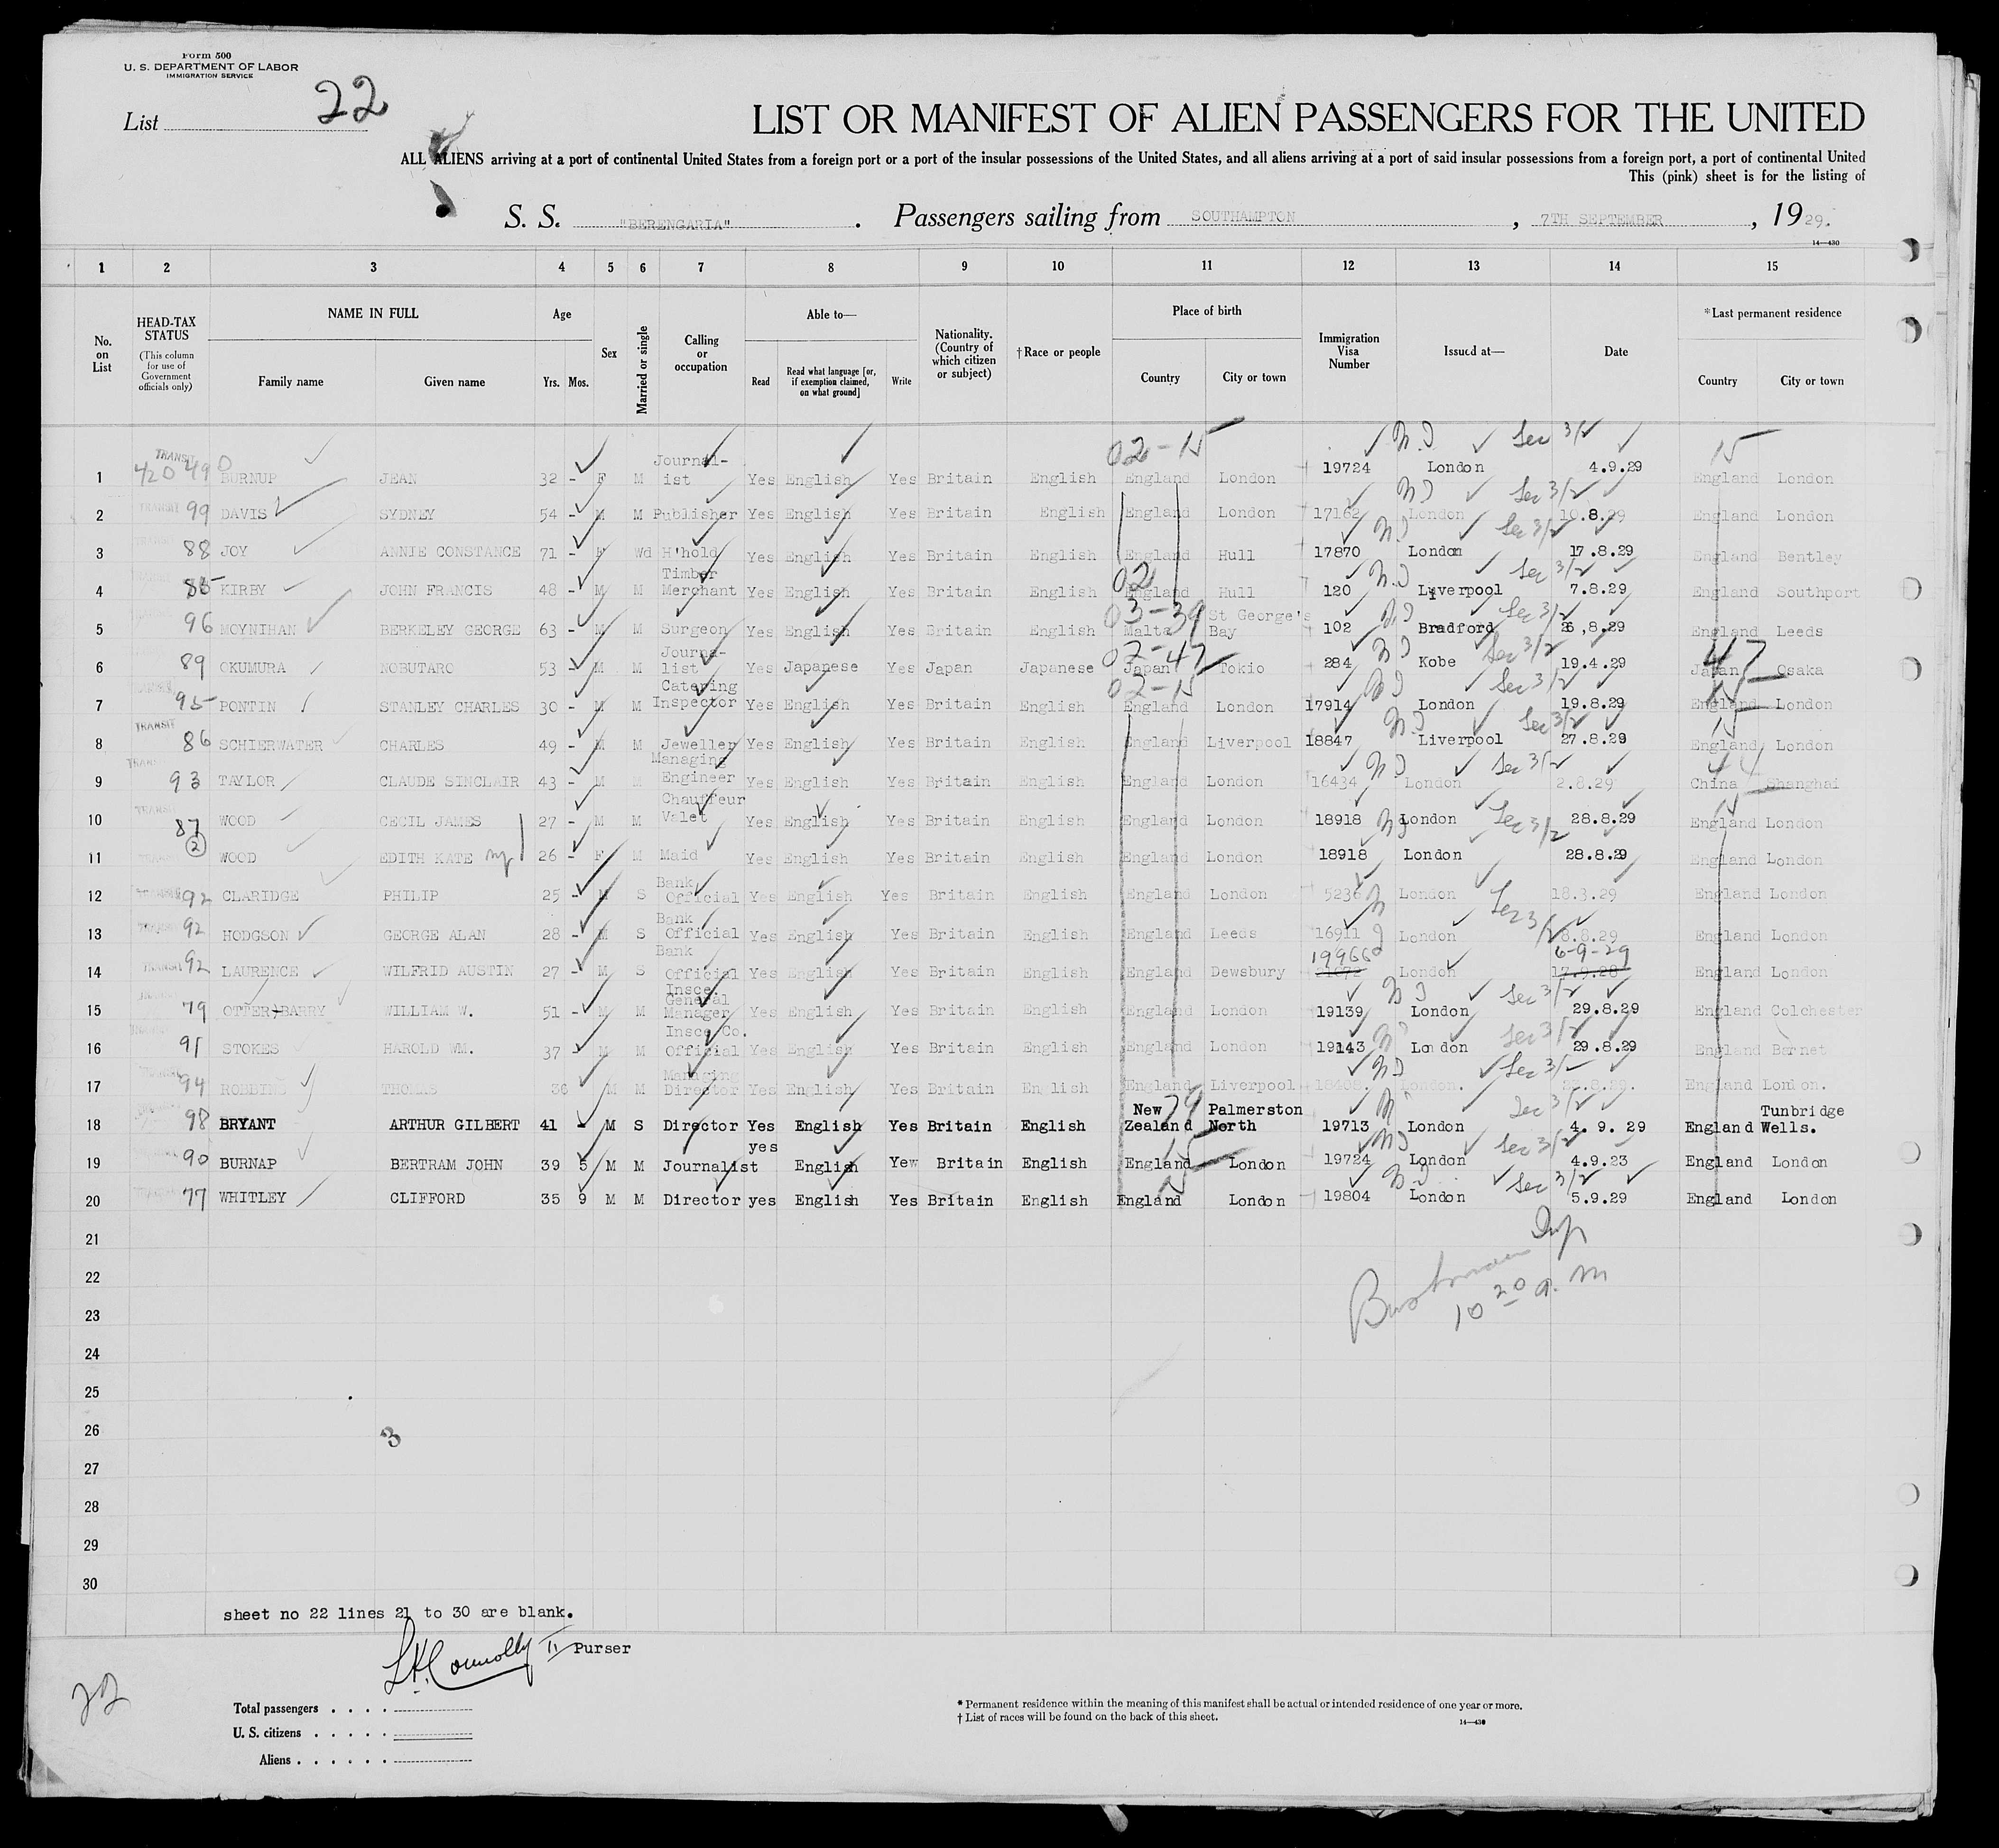 Form 500
U. S. DEPARTMENT OF LABOR
IMMIGRATION SERVICE
List 22
LIST OR MANIFEST OF ALIEN PASSENGERS FOR THE UNITED
ALL ALIENS arriving at a port of continental United States from a foreign port or a port of the insular possessions of the United States, and all aliens arriving at a port of said insular possessions from a foreign port, a port of continental United
This (pink) sheet is for the listing of
S. S. "BERENGARIA". Passengers sailing from SOUTHAMPTON, 7TH SEPTEMBER, 1929.
14—430
1 2 3 4 5 6 7 8 9 10 11 12 13 14 15
No. on List HEAD-TAX STATUS (This column for use of Government officials only) NAME IN FULL Family name Given name Age Yrs. Mos. Sex Married or single Calling or occupation Able to— Read Read what language [or, if exemption claimed, on what ground] Write Nationality. (Country of which citizen or subject) †Race or people Place of birth Country City or town Immigration Visa Number Issued at— Date *Last permanent residence Country City or town
02-15 N.I Sec 3/2 15
1 TRANSIT 420490 BURNUP JEAN 32 - F M Journal-ist Yes English Yes Britain English England London 19724 London 4.9.29 England London
2 TRANSIT 99 DAVIS SYDNEY 54 - M M Publisher Yes English Yes Britain English England London 17162 London 10.8.29 England London
3 88 JOY ANNIE CONSTANCE 71 - F Wd H'hold Yes English Yes Britain English England Hull 17870 London 17.8.29 England Bentley
4 85 KIRBY JOHN FRANCIS 48 - M M Timber Merchant Yes English Yes Britain English 02 England Hull 120 Liverpool 7.8.29 England Southport
5 96 MOYNIHAN BERKELEY GEORGE 63 - M M Surgeon Yes English Yes Britain English 03-39 Malta St George's Bay 102 Bradford 26,8.29 England Leeds
6 89 OKUMURA NOBUTARO 53 - M M Journa-list Yes Japanese Yes Japan Japanese 07-47 Japan Tokio 284 Kobe 19.4.29 47 Japan Osaka
7 95 PONTIN STANLEY CHARLES 30 - M M Catering Inspector Yes English Yes Britain English 02-15 England London 17914 London 19.8.29 15 England London
8 TRANSIT 86 SCHIERWATER CHARLES 49 - M M Jeweller Yes English Yes Britain English England Liverpool 18847 Liverpool 27.8.29 15 England London
9 TRANSIT 93 TAYLOR CLAUDE SINCLAIR 43 - M M Managing Engineer Yes English Yes Britain English England London 16434 London 2.8.29 44 China Shanghai
10 TRANSIT 87 WOOD CECIL JAMES 27 - M M Chauffeur Valet Yes English Yes Britain English England London 18918 London 28.8.29 15 England London
11 2 WOOD EDITH KATE 26 - F M Maid Yes English Yes Britain English England London 18918 London 28.8.29 England London
12 92 CLARIDGE PHILIP 25 - M S Bank Official Yes English Yes Britain English England London 5236 London 18.3.29 England London
13 TRANSIT 92 HODGSON GEORGE ALAN 28 - M S Bank Official Yes English Yes Britain English England Leeds 16911 London 8.8.29 England London
14 TRANSIT 92 LAURENCE WILFRID AUSTIN 27 - M S Bank Official Yes English Yes Britain English England Dewsbury 19966 London 6-9-29 England London
15 79 OTTER-BARRY WILLIAM W. 51 - M M Insce. General Manager Yes English Yes Britain English England London 19139 London 29.8.29 England Colchester
16 91 STOKES HAROLD WM. 37 - M M Insce Co. Official Yes English Yes Britain English England London 19143 London 29.8.29 England Barnet
17 94 ROBBINS THOMAS 36 M M Managing Director Yes English Yes Britain English England Liverpool London. England London.
18 98 BRYANT ARTHUR GILBERT 41 - M S Director Yes English Yes Britain English New Zealand 79 Palmerston North 19713 London 4. 9. 29 England Tunbridge Wells.
19 90 BURNAP BERTRAM JOHN 39 5 M M Journalist yes English Yew Britain English England 15 London 19724 London 4.9.23 England London
20 77 WHITLEY CLIFFORD 35 9 M M Director yes English Yes Britain English England 15 London 19804 London 5.9.29 England London
21
22
23 10 20 a.m
24
25
26 3
27
28
29
30
sheet no 22 lines 21 to 30 are blank.
Connolly II Purser
22
Total passengers
U. S. citizens
Aliens
* Permanent residence within the meaning of this manifest shall be actual or intended residence of one year or more.
† List of races will be found on the back of this sheet.
14—430